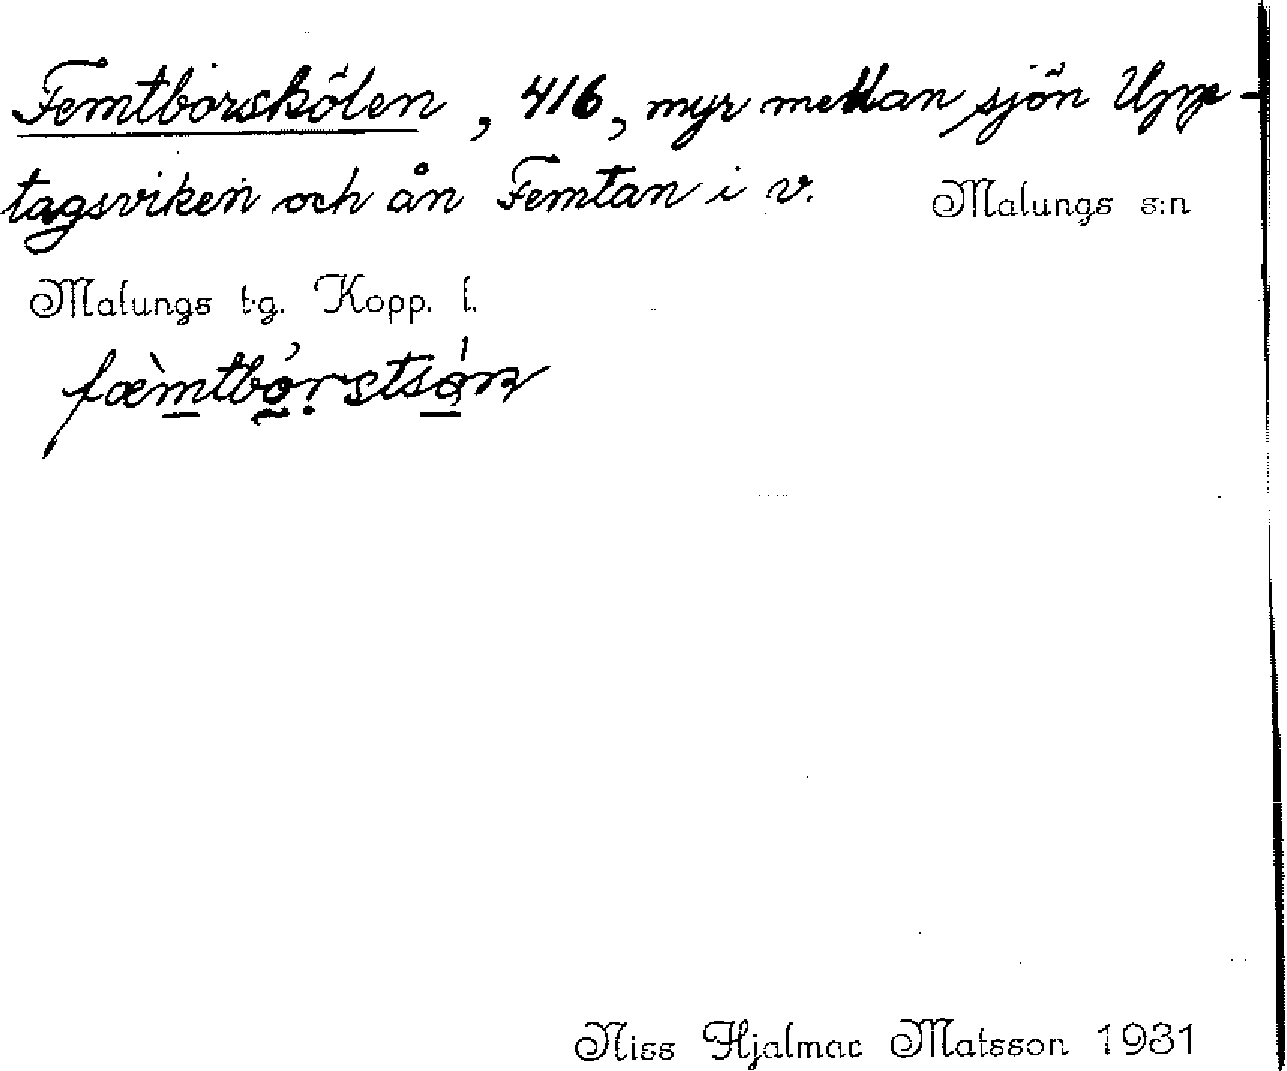 Femtborskölen, 416, myr mellan sjön Upp-
tagsviken och ån Femtan i v. Malungs s:n
Malungs tg. Kopp. l.
fæ̀mtbo̠rṣtsó̠n
Niss Hjalmar Matsson 1931